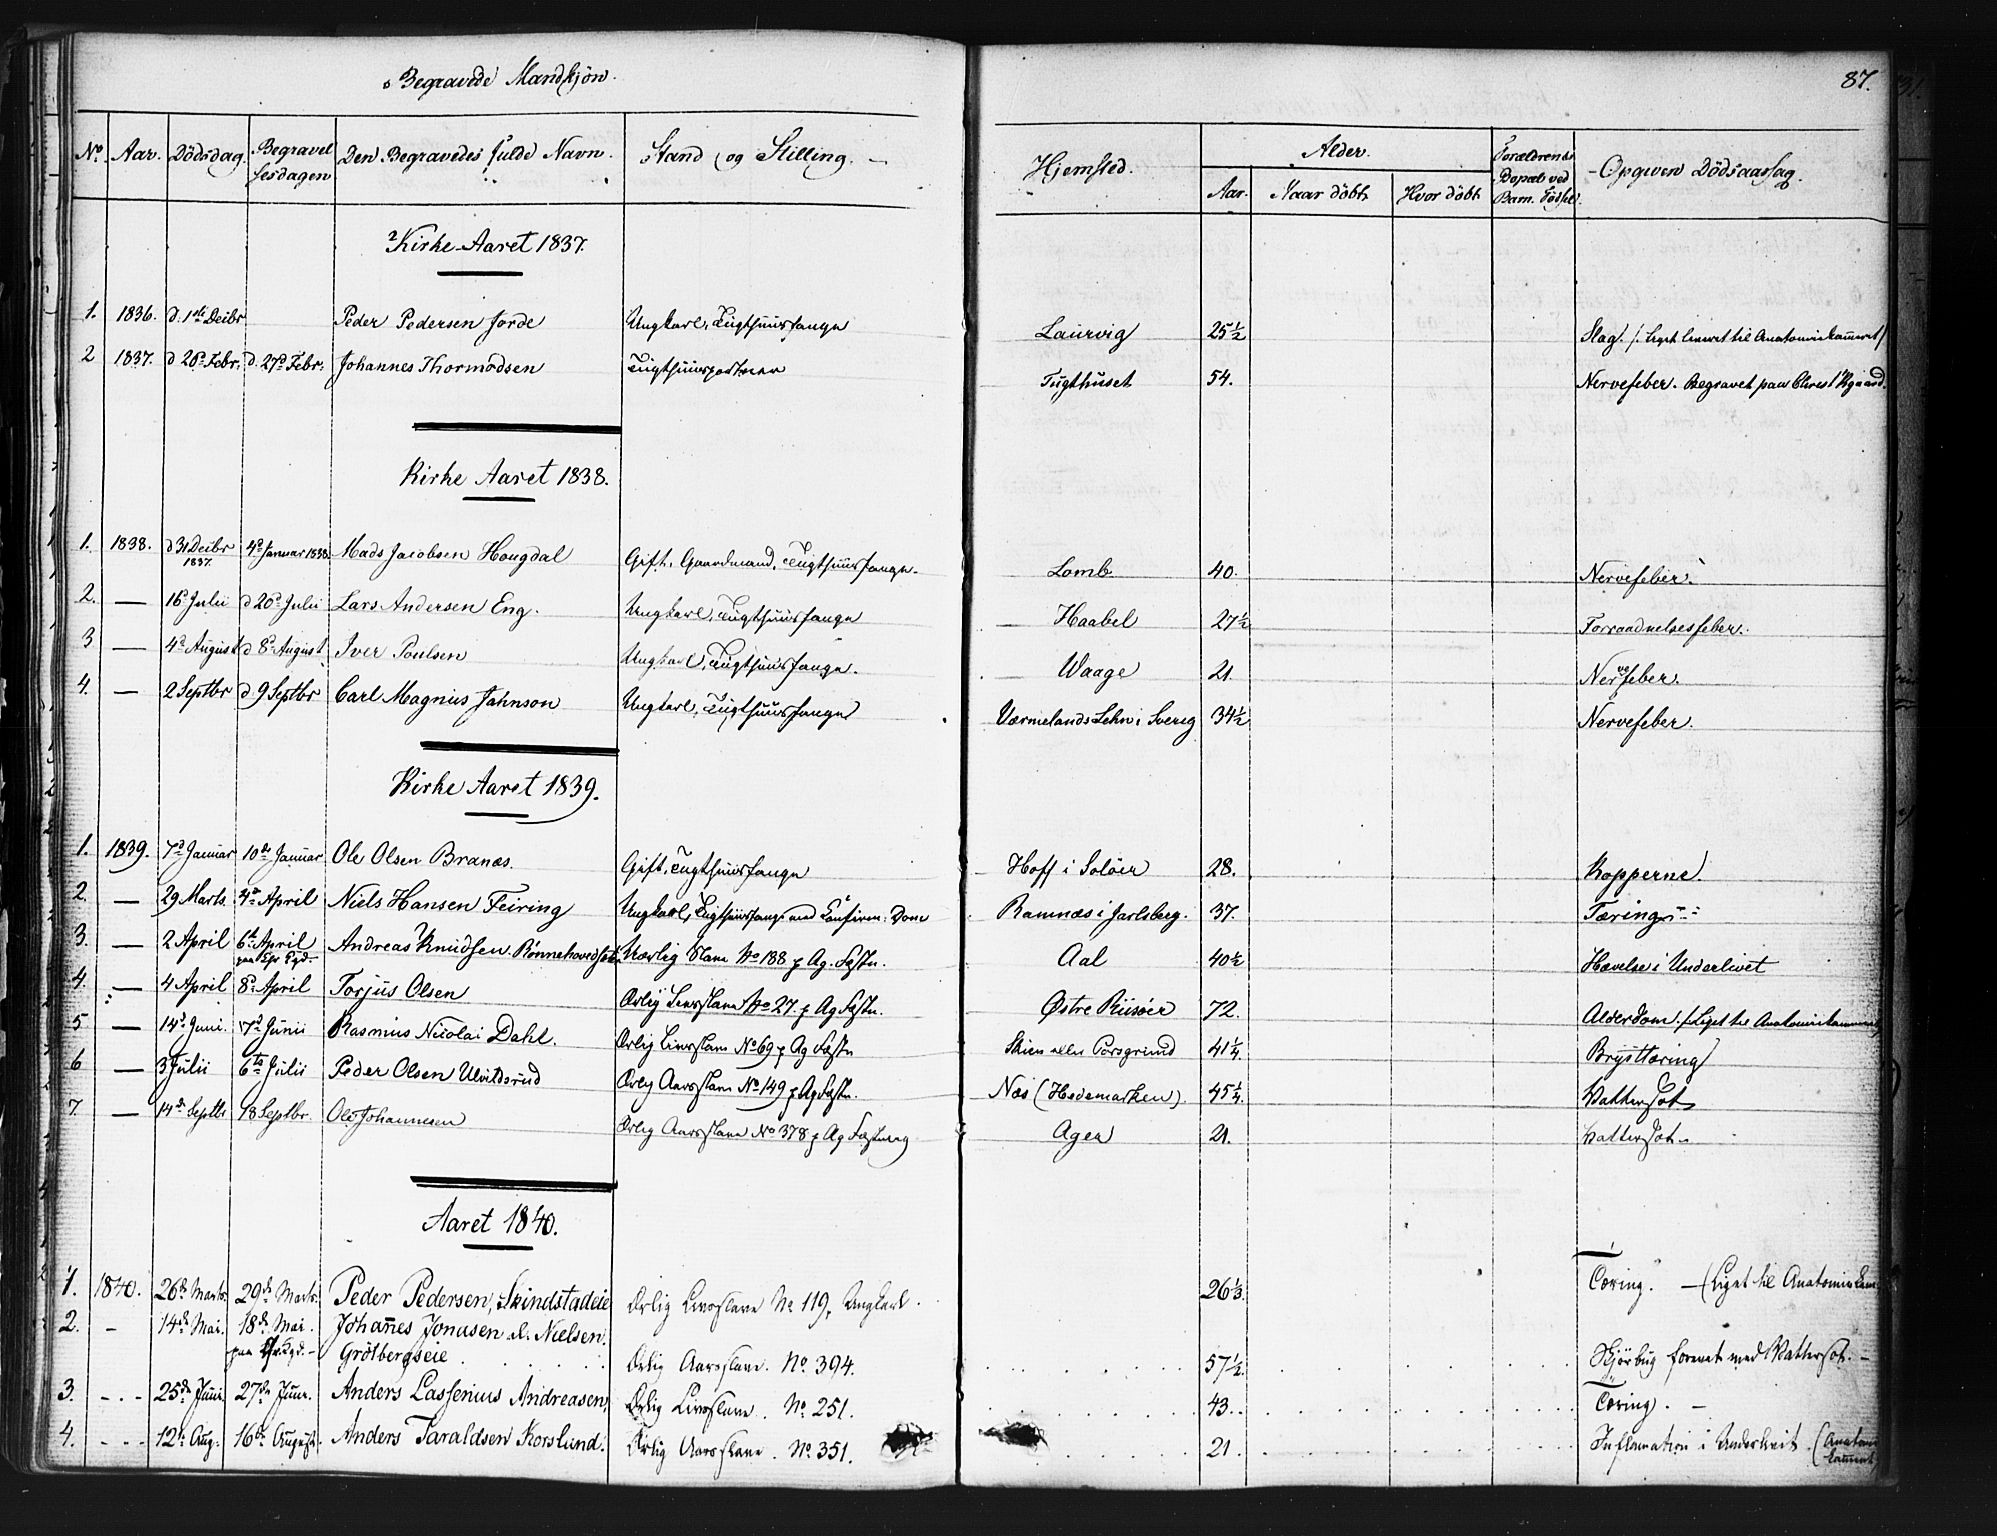 Begravede Mandkjøn.
87.
No. Aar. Dödsdag. Begravel sesdagen Den Begravedes fulde Navn. Stand og Stilling. Hjemsted. Alder. Forældrenes Bopæl ved Barn. Födsel. Opgiven Dödsaarsag.
Aar. Naar döbt. Hvor döbt
Kirke-Aaret 1837.
1. 1836. d. 1ste Decbr Peder Pedersen Jorde Ungkarl, Tugthuusfange Laurvig 25½ Slag. /: Liget leveret til Anatomiekammeret/
2 1837. d 26d Febr. d. 27d Febr. Johannes Thormodsen Tugthuusportner Tugthuset 54. Nervefeber. Begravet paa Christ Kgaard.
Kirke Aaret 1838.
1. 1838. d 31 Decbr 1837. 4d Januar 1838. Mads Jacobsen Hougdal Gift, Gaardmand, Tugthuusfange. Lomb 40. Nervefeber.
2. — 16d Julii d 20d Julii Lars Andersen Eng. Ungkarl, Tugthuusfange Haabel 27½ Forraadnelsesfeber.
3 — 4d August d 8d August Iver Poulsen Ungkarl, Tugthuusfange. Waage 21. Nervefeber.
4. — 2 Septbr d. 9 Septbr Carl Magnus Jahnson Ungkarl, Tugthuusfange Værmelands Lehn i Sverig 34½ Nervefeber.
Kirke Aaret 1839.
1. 1839. 7d Januar 10de Januar Ole Olsen Branæs. Gift, Tugthuusfange Hoff i Solöer 28. Kopperne.
2. — 29 Marts 4de April Niels Hansen Feiring Ungkarl, Tugthuusfange med Confirm. Dom Ramnæs i Jarlsberg. 37. Tæring
3. — 2 April 6te April Andreas Knudsen Rönnehovedseter Uærlig Slave No 188 p Ag. Fæstn. Aal 40½ Hævelse i Underlivet
4. — 4 April 8d April Torjus Olsen Ærlig Livsslave No 27 p Ag Fæstn. Østre Riisöer 72. Alderdom. /: Liget til Anatomiekammeret
5 — 14d Juni. 17d Junii Rasmus Nicolai Dahl. Ærlig Livsslave No 69 p Ag Fæstn Skien eller Porsgrund 41¼ Brysttæring
6 — 3 Julii 6te Julii Peder Olsen Ulvildsrud Ærlig Aarsslave No 149 p Ag Fæstn. Næs (Hedemarken) 45¼. Vattersot
7. — 14de Septbr 18 Septbr. Ole Johannesen Ærlig Aarsslave No 378 p Ag Fæstning Ager 21. Vattersot
Aaret 1840.
1. 1840. 26de Marts 29de Marts. Peder Pedersen, Skindstadeie Ærlig Livsslave No 119, Ungkarl. 26⅓. Tæring. — (Liget til Anatomiekam
2. - 14de Mai. 18de Mai. Johannes Jonasen el. Nielsen.
Grötbergseie Ærlig Aarsslave. No. 394. 57½. Skjörbug forenet med Vattersot. —
3. - - - 25de Juni. 27de Juni. Anders Lassenius Andreasen, Ærlig Livsslave. No. 251. 43. Tæring. —
4. - - - 12te Aug. 16de August. Anders Taraldsen Korslund. Ærlig Aarsslave. No. 351. 21. Inflamation i Underlivet. (Anatom